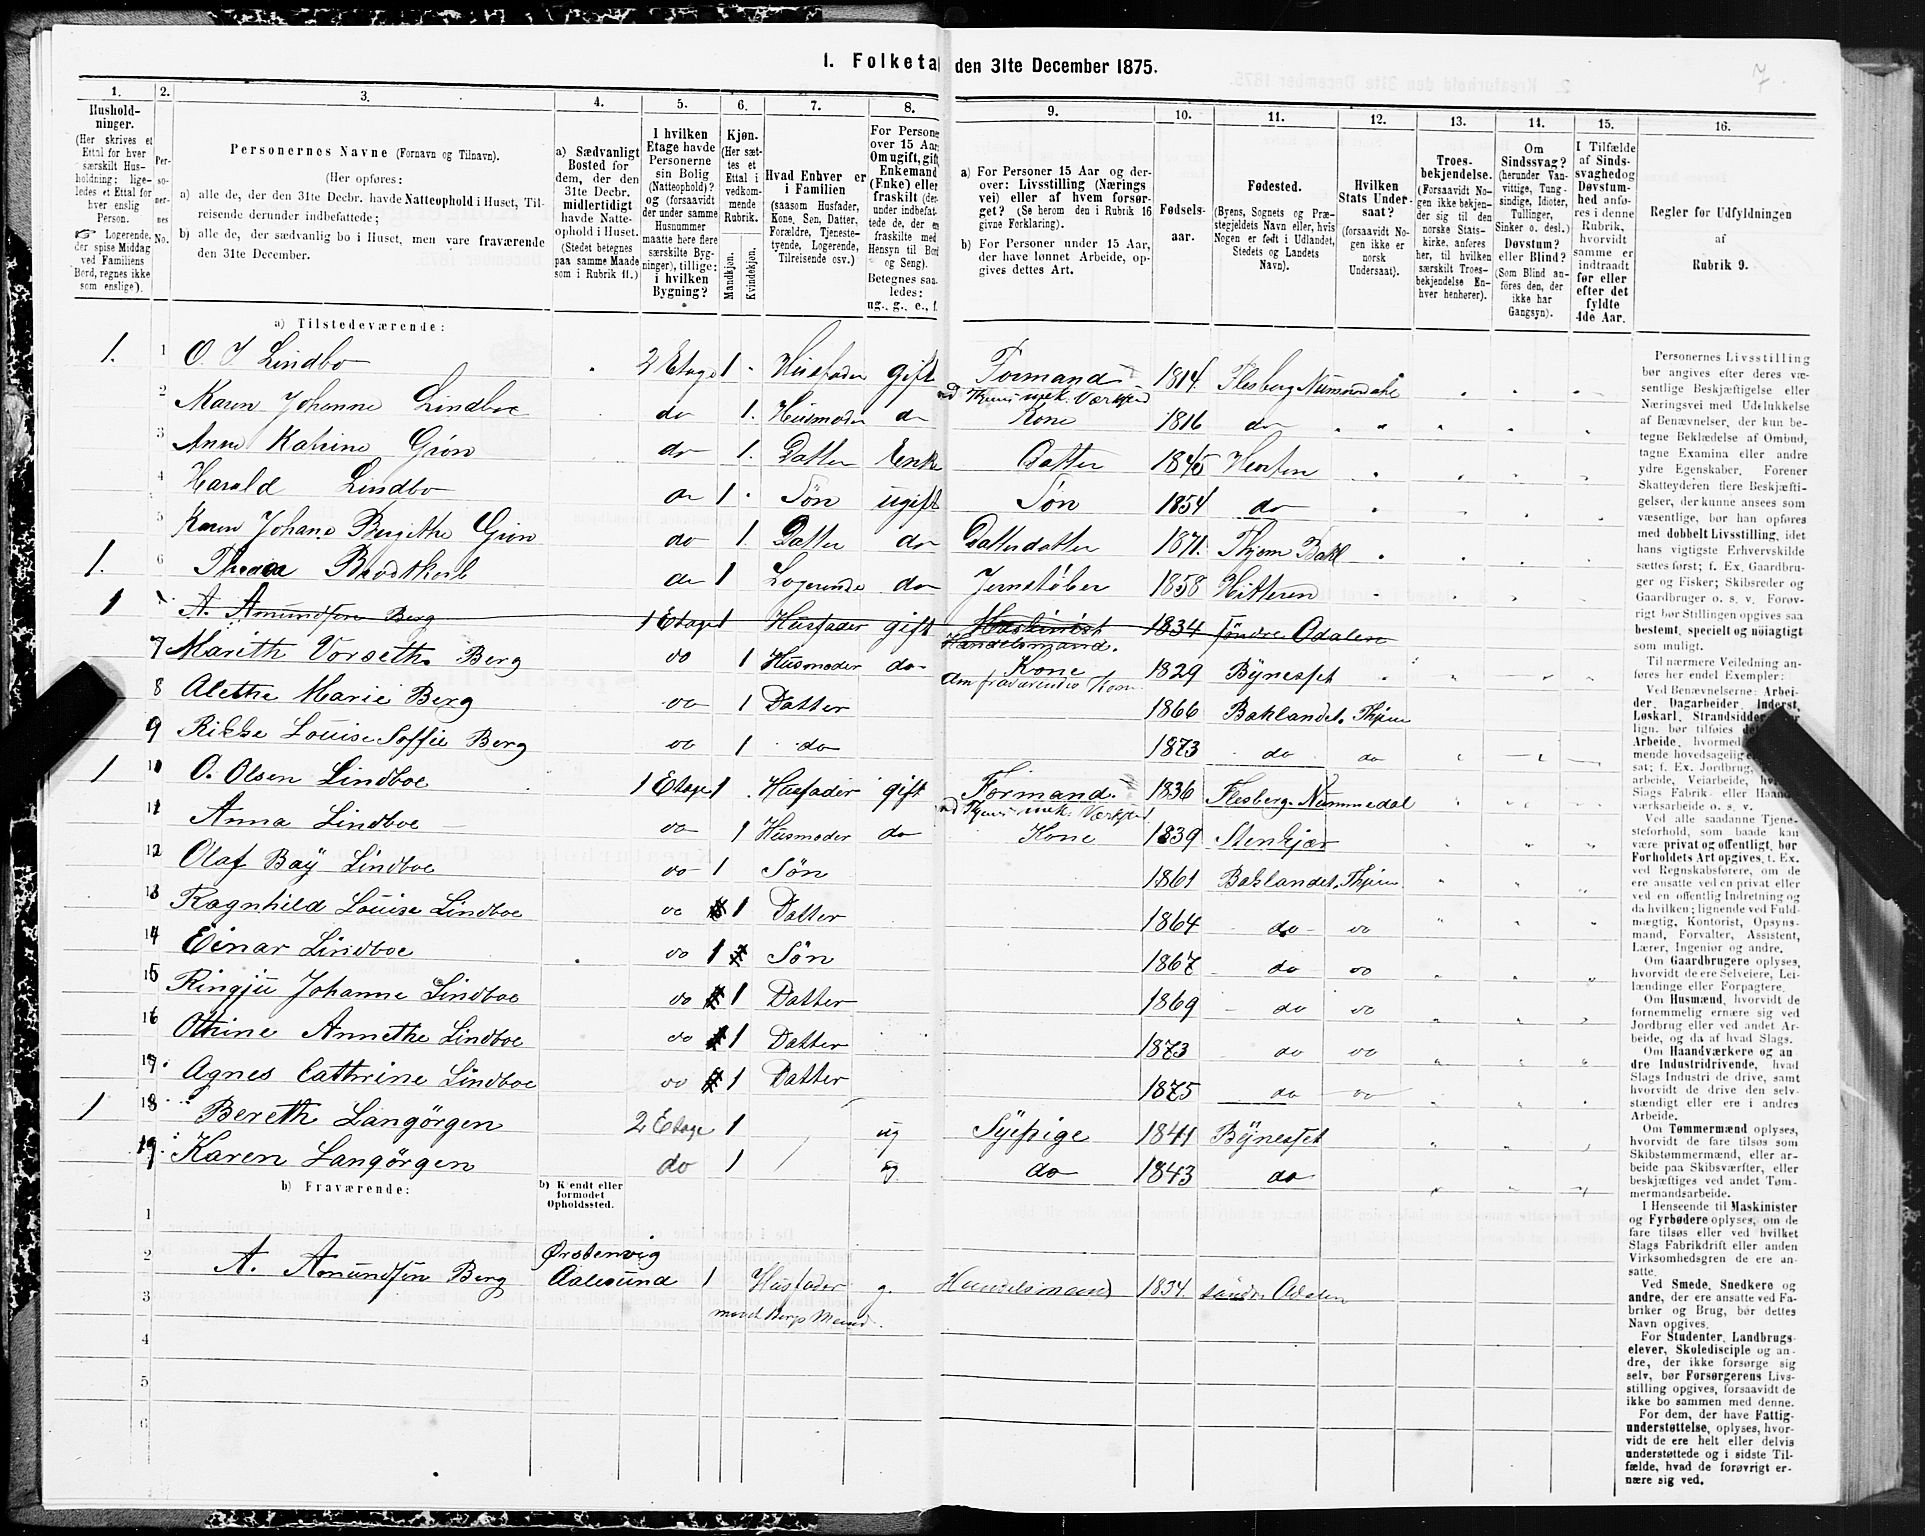 1. Folketa den 31te December 1875.
7.
1. 2. 3. 4. 5. 6. 7. 8. 9. 10. 11. 12. 13. 14. 15. 16.
Hushold-
ninger.
(Her skrives et
Ettal for hver
særskilt Hus-
holdning; lige-
ledes et Ettal for
hver enslig
Person.
☞ Logerende,
der spise Middag
ved Familiens
Bord, regnes ikke
som enslige).
Per-
so-
ner-
nes
No.
Personernes Navne (Fornavn og Tilnavn).
(Her opføres:
a) alle de, der den 31te Decbr. havde Natteophold i Huset, Til-
reisende derunder indbefattede;
b) alle de, der sædvanlig bo i Huset, men vare fraværende
den 31te December.
a) Sædvanligt
Bosted for
dem, der den
31te Decbr.
midlertidigt
havde Natte-
ophold i Huset.
(Stedet betegnes
paa samme Maade
som i Rubrik 11.)
I hvilken
Etage havde
Personerne
sin Bolig
(Natteophold)?
og (forsaavidt
der under samme
Husnummer
maatte høre flere
særskilte Byg-
ninger), tillige:
i hvilken
Bygning?
Kjøn.
(Her sæt-
tes et
Ettal i
vedkom-
mende
Rubrik.
Mandkjøn.
Kvindekjøn.
Hvad Enhver er
i Familien
(saasom Husfader,
Kone, Søn, Datter,
Forældre, Tjeneste-
tyende, Logerende,
Tilreisende osv.)
For Persone
over 15 Aar
Om ugift, gift,
Enkemand
(Enke) eller
fraskilt (der
under indbefat-
tede de, der er
fraskilte med
Hensyn til Bord
og Seng).
Betegnes saa-
ledes:
ug., g., e., f.
a) For Personer 15 Aar og der-
over: Livsstilling (Nærings
vei) eller af hvem forsør-
get? (Se herom den i Rubrik 16
givne Forklaring).
b) For Personer under 15 Aar,
der have lønnet Arbeide, op-
gives dettes Art.
Fødsels-
aar.
Fødested.
(Byens, Sognets og Præ-
stegjeldets Navn eller, hvis
Nogen er født i Udlandet,
Stedets og Landets
Navn).
Hvilken
Stats Under-
saat?
(forsaavidt No-
gen ikke er
norsk
Undersaat).
Troes-
bekjendelse.
(Forsaavidt No-
gen ikke bekjen-
der sig til den
norske Stats-
kirke, anføres
her, til hvilken
særskilt Troes-
bekjendelse En-
hver henhører).
Om
Sindssvag?
(herunder Van-
vittige, Tung-
sindige, Idioter,
Tullinger,
Sinker o. desl.)
Døvstum?
eller Blind?
(Som Blind an-
föres den, der
ikke har
Gangsyn).
I Tilfælde
af Sinds-
svaghed og
Døvstum-
hed anfø-
res i denne
Rubrik,
hvorvidt
samme er
indtraadt
før eller
efter det
fyldte
4de Aar.
Regler for Udfyldningen
af
Rubrik 9.
a) Tilstedeværende:
1. 1 O. J. Lindbo 2 Etage 1 Husfader gift Formand 1814 Flesberg Numedale
ved Thjems mek. Værksted
2 Karen Johanne Lindboe do 1. Husmoder do Kone 1816 do
3 Anne Katrine Grøn do 1. Datter Enke Datter 1845 Horten
4 Harald Lindbo do 1 Søn ugift Søn 1854 do
5 Karen Johane Bergithe Grøn do 1. Datter do Datterdatter 1871. Thjem Bakl
1. 6 Brodtkorb do 1 Logerende do Jernstøber 1858 Hitteren
1 A. Amundsen Berg 1 Etage 1 Husfader gift Maskinist 1834 søndre Odalen
Handelsmand.
7 Marith Vorseth Berg do 1 Husmoder do Kone 1829 Bynesset
den fraværendes Kone
8 Alethe Marie Berg do 1 Datter 1866 Baklandet. Thjem
9 Rikke Louise Soffie Berg do 1 do 1873 do do
1 10 O. Olsen Lindboe 1 Etage 1 Husfader gift Formand 1836 Flesberg Nummedal
ved Thjems mek. Værksted
11 Anna Lindboe do 1 Husmoder do Kone 1839 Stenkjær
12 Olaf Baÿ Lindboe do 1 Søn 1861 Baklandet. Thjem
13 Ragnhild Louise Lindboe do 1 Datter 1864 do do
14 Einar Lindboe do 1 Søn 1867 do do
15 Johanne Lindboe do 1 Datter 1869 do do
16 Othine Annethe Lindboe do 1 Datter 1873 do do
17 Agnes Cathrine Lindboe do 1 Datter 1875 do do
1 18 Bereth Langörgen 2 Etage 1 ug Sypige 1841 Bynesset
19 Karen Langörgen do 1 ug do 1843 do
b) Fraværende:
b) Kjendt eller
formodet
Opholdssted.
1
2 Ørstenvig
A. Amundsen Berg Aalesund 1 Husfader g. Handelsmand 1834. søndre Odalen
3
4
5
6
Personernes Livsstilling
bør angives efter deres væ-
sentlige Beskjæftigelse eller
Næringsvei med Udelukkelse
af Benævnelser, der kun be-
tegne Beklædelse af Ombud,
tagne Examina eller andre
ydre Egenskaber. Forener
Skatteyderen flere Beskjæfti-
gelser, der kunne ansees som
væsentlige, bør han opføres
med dobbelt Livsstilling, idet
hans vigtigste Erhvervskilde
sættes først; f. Ex. Gaardbru-
ger og Fisker; Skibsreder og
Gaardbruger o. s. v. Forøv-
rigt bør Stillingen opgives saa
bestemt, specielt og nöiagtigt
som muligt.
Til nærmere Veiledning an-
føres her endel Exempler:
Ved Benævnelserne: Arbei-
der, Dagarbeider, Inderst,
Løskarl, Strandsidder
lign. bør tilføies de
Arbeide, hvormed
mende hovedsagelig
sat; f. Ex. Jordbrug,
arbeide, Veiarbeide,
Slags Fabrik- eller Haand-
værksarbeide o. s. v.
Ved alle saadanne Tjene-
steforhold, som baade kan
være privat og offentligt, bør
Forholdets Art opgives, t. Ex.
ved Regnskabsførere, om de
ere ansatte ved en privat eller
ved en offentlig Indretning og
da hvilken; lignende ved Fuld-
mægtig, Kontorist, Opsyns-
mand, Forvalter, Assistent,
Lærer, Ingeniør og andre.
Om Gaardbrugere oplyses,
hvorvidt de ere Selveiere, Lei-
lændinge eller Forpagtere.
Om Husmænd, hvorvidt de
fornemmelig ernære sig ved
Jordbrug eller ved andet Ar-
beide, og da af hvad Slags.
Om Haandværkere og an
dre Industridrivende, hvad
Slags Industri de drive, samt
hvorvidt de drive den selv-
stændigt eller ere i andres
Arbeide.
Om Tømmermænd oplyses,
hvorvidt de fare tilsøs som
Skibstømmermænd, eller ar-
beide paa Skibsværfter, eller
beskjæftiges ved andet Tøm-
mermandsarbeide.
I Henseende til Maskinister
og Fyrbødere oplyses, om de
fare tilsøs eller ved hvilket
Slags Fabrikdrift eller anden
Virksomhedsgren de ere an-
satte.
Ved Smede, Snedkere og
andre, der ere ansatte ved Fa-
briker og Brug, bør dettes
Navn opgives.
For Studenter, Landbrugs-
elever, Skoledisciple og an-
dre, der ikke forsørge sig
selv, bør Forsørgerens Livs-
stilling opgives, forsaavidt de
ikke bo sammen med denne.
For dem, der have Fattig-
understøttelse, oplyses, hvor-
vidt de ere helt eller delvis
understøttede og i sidste Til-
fælde, hvad de forøvrigt er-
nære sig ved.